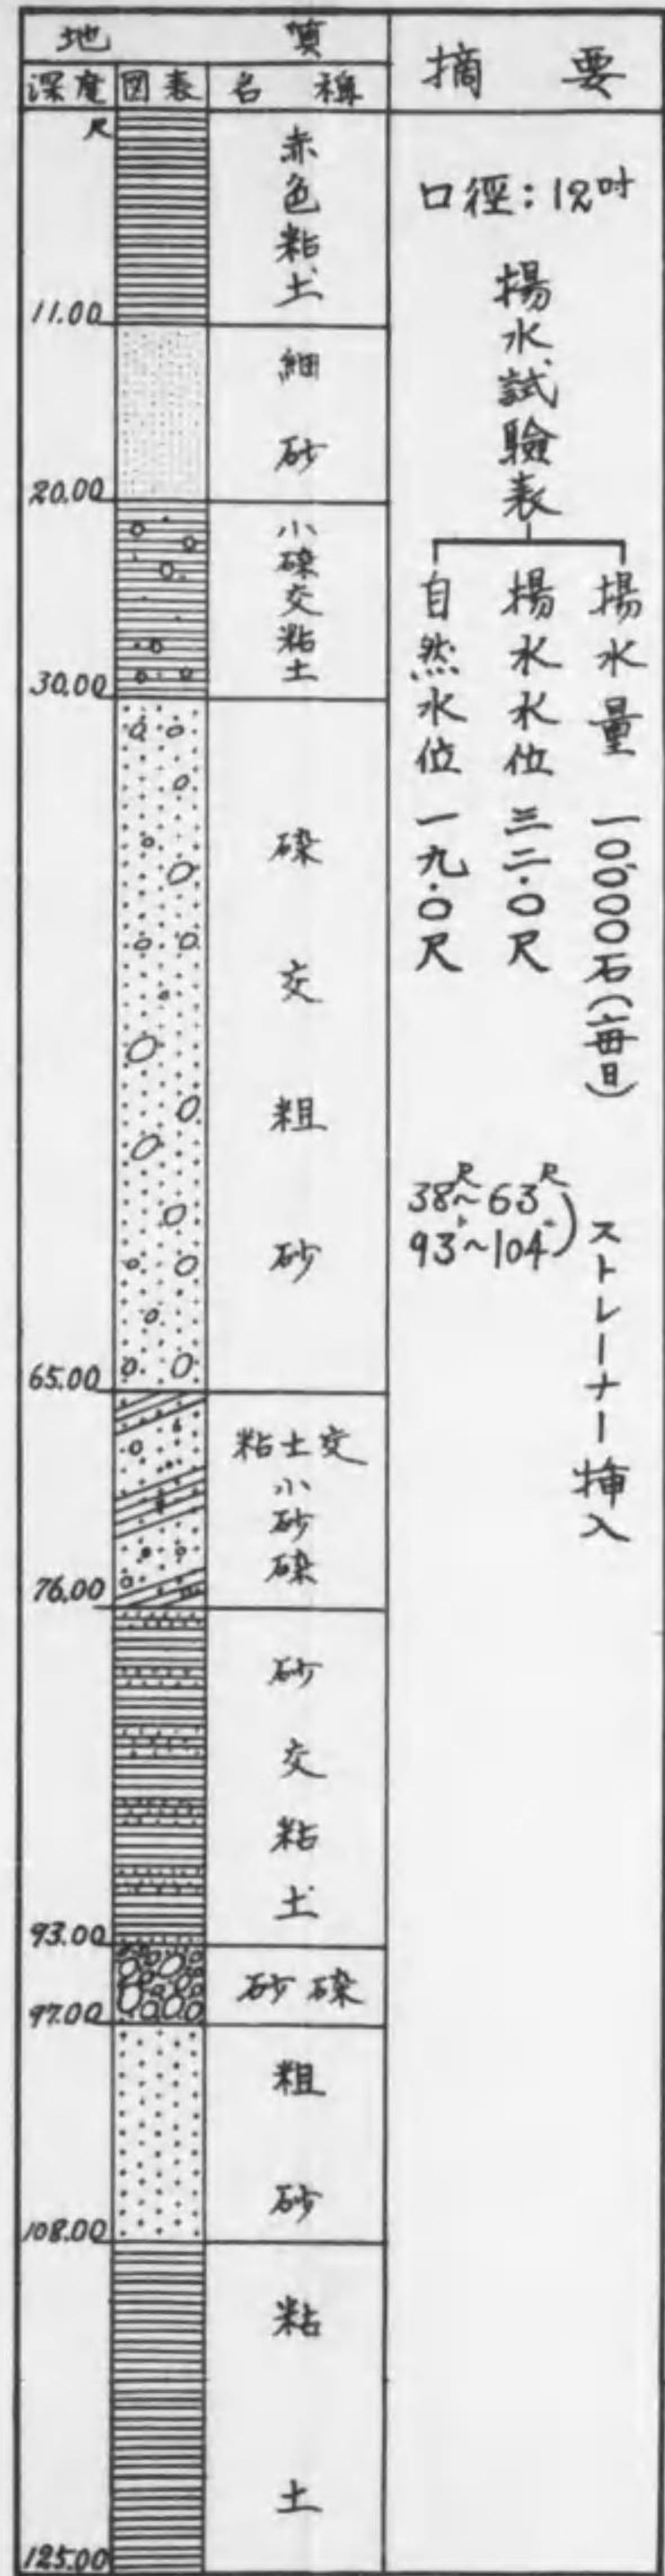 地質
摘要
深度 図表 名稱
尺
赤色粘土
11.00
細砂
20.00
小礫交粘土
30.00
礫交粗砂
65.00
粘土交
小砂礫
76.00
砂交粘土
93.00
砂礫
97.00
粗砂
108.00
粘土
125.00
口徑:12吋
揚水試驗表
揚水量 一〇〇〇〇石(毎日)
揚水水位 三二.〇尺
自然水位 一九.〇尺
38尺~63尺
93〃~104〃
ストレーナー挿入